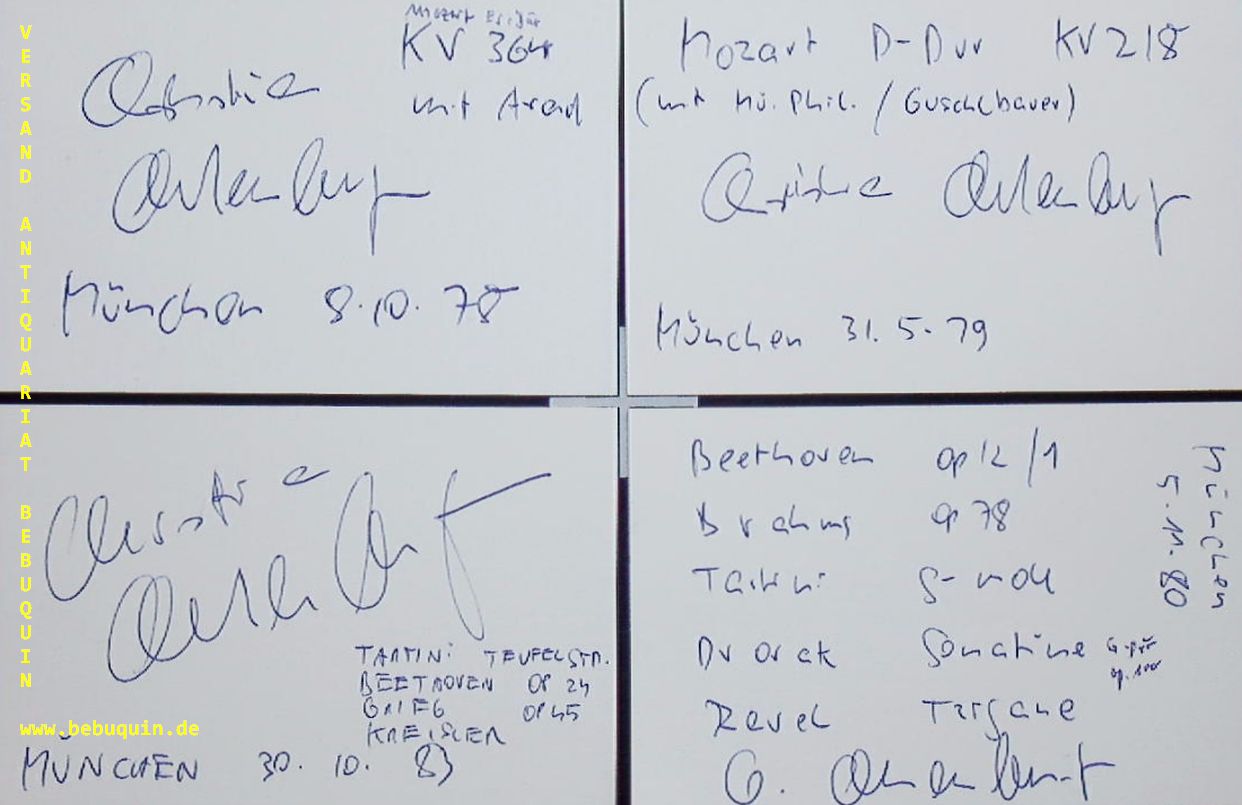 VERSAND ANTIQUARIAT BEBUQUIN
www.bebuquin.de
Mozart Es-Dur
KV 364
mit Arad
Christiane
Edinger
München 8.10.78
Mozart D-Dur KV 218
(mit Mü. Phil. / Guschlbauer)
München 31.5.79
TARTINI TEUFELSTR.
BEETHOVEN OP 24
GRIEG OP 45
KREISLER
MÜNCHEN 30. 10. 83
Beethoven op 12/1
Brahms op 78
Tartini g-moll
Dvorak Sonatine G-Dur
op. 100
Ravel Tzigane
München
5.11.80